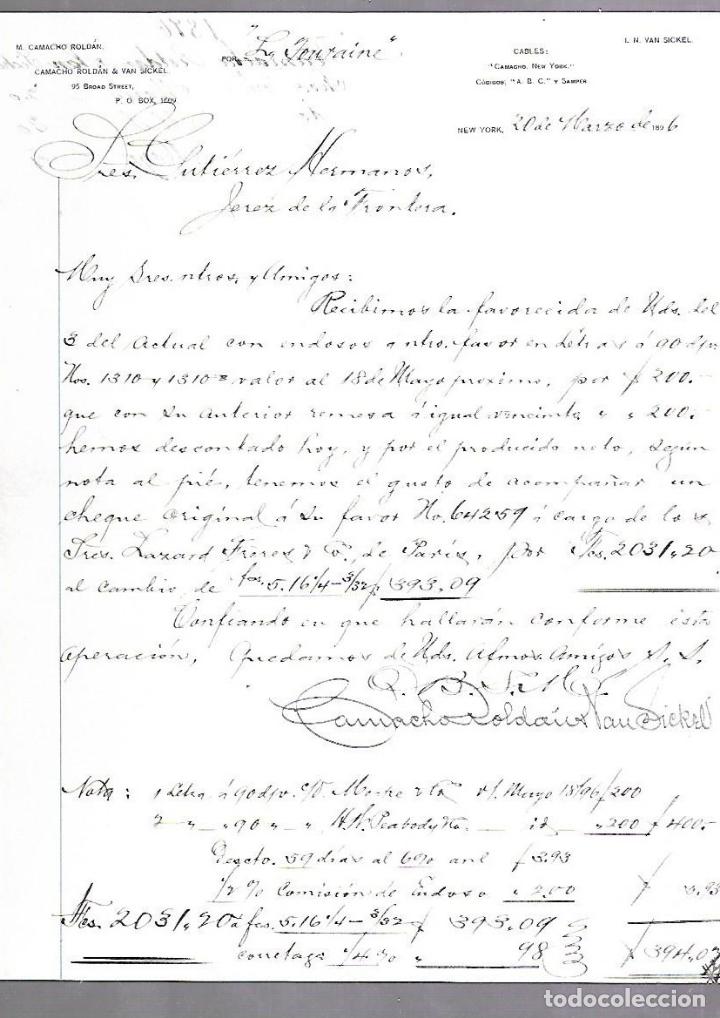 M. CAMACHO ROLDÁN.
I. N. VAN SICKEL.
POR "La Touraine"
CAMACHO ROLDÁN & VAN SICKEL
95 BROAD STREET,
P. O. BOX, 1609
CABLES:
"CAMACHO, NEW YORK,"
CÓDIGOS, "A. B. C." Y SAMPER
NEW YORK, 20 de Marzo de 1896
Sres. Gutiérrez Hermanos,
Jerez de la Frontera.
Muy Sres. ntros. y Amigos:
Recibimos la favorecida de Uds. del
3 del actual con endosos a ntro. favor en Letras á 90 d/v
Nos. 1310 y 1310 valor al 18 de Mayo proximo, por £ 200.-
que con su anterior remesa á igual vencimto " " 200.-
hemos descontado hoy, y por el producido neto, según
nota al pié, tenemos el gusto de acompañar un
cheque original á su favor No. 64259 á cargo de los
Sres. Lazard Freres & Co. de París, por Fcs. 2031.20
al cambio de fcs. 5.16 1/4 - 3/32 393.09
Confiando en que hallarán conforme esta
operación, quedamos de Uds. Afmos. Amigos S. S.
Q. B. S. M.
Camacho Roldán & Van Sickel
Nota: 1 Letra á 90 d/v. c/o. & Co. v/. Mayo 18/96 200
" 90 " Peabody & Co. id " 200 400.-
Descto. 59 días al 6% anl 3.93
1/2 % Comisión de Endoso " 2.00 3.93
Fcs. 2031.20 á fcs. 5.16 1/4 - 3/32 393.09
corretage 1/4 % " 98 394.07
todocoleccion